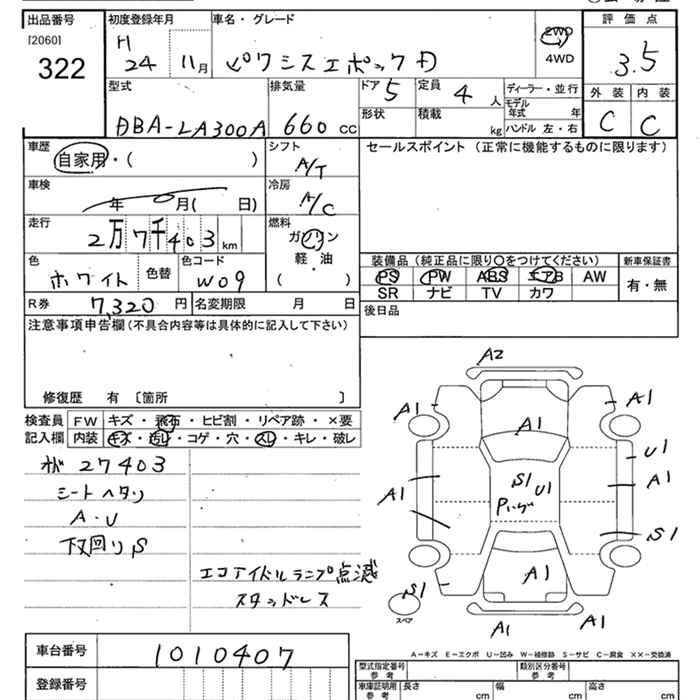 出品番号
[2060]
322
初度登録年月
H
24
11月
車名・グレード
ピクシスエポック D
2WD
4WD
評価点
3.5
型式
DBA-LA300A
排気量
660 CC
ドア 5
形状
定員 4 人
積載 kg
ディーラー・並行
モデル年式 年
ハンドル 左・右
外装
C
内装
C
車歴
自家用・( )
シフト
A/T
車検
年 月( 日)
冷房
A/C
走行
2万7千403 km
燃料
ガソリン
軽・油
( )
色
ホワイト
色替
色コード
W09
R券
7,320 円
名変期限 月 日
セールスポイント (正常に機能するものに限ります)
装備品 (純正品に限り○をつけてください)
PS PW ABS エアB AW
SR ナビ TV カワ
新車保証書
有・無
後日品
注意事項申告欄 (不具合内容等は具体的に記入して下さい)
修復歴 有 〔箇所 〕
検査員
記入欄
FW キズ・飛石・ヒビ割・リペア跡・×要
内装 キズ・汚レ・コゲ・穴・スレ・キレ・破レ
27403
シートヘタリ
A・U
下回りS
エコアイドルランプ点滅
スタッドレス
A2
A1
A1
A1
U1
A1
A1
S1
U1
S1
A1
S1
A1
A1
スペア
A-キズ E-エクボ U-凹み W-補修跡 S-サビ C-腐食 ××-交換済
車台番号
1010407
登録番号
型式指定番号
参考
類別区分番号
参考
車庫証明用
参考
長さ cm
幅 cm
高さ cm